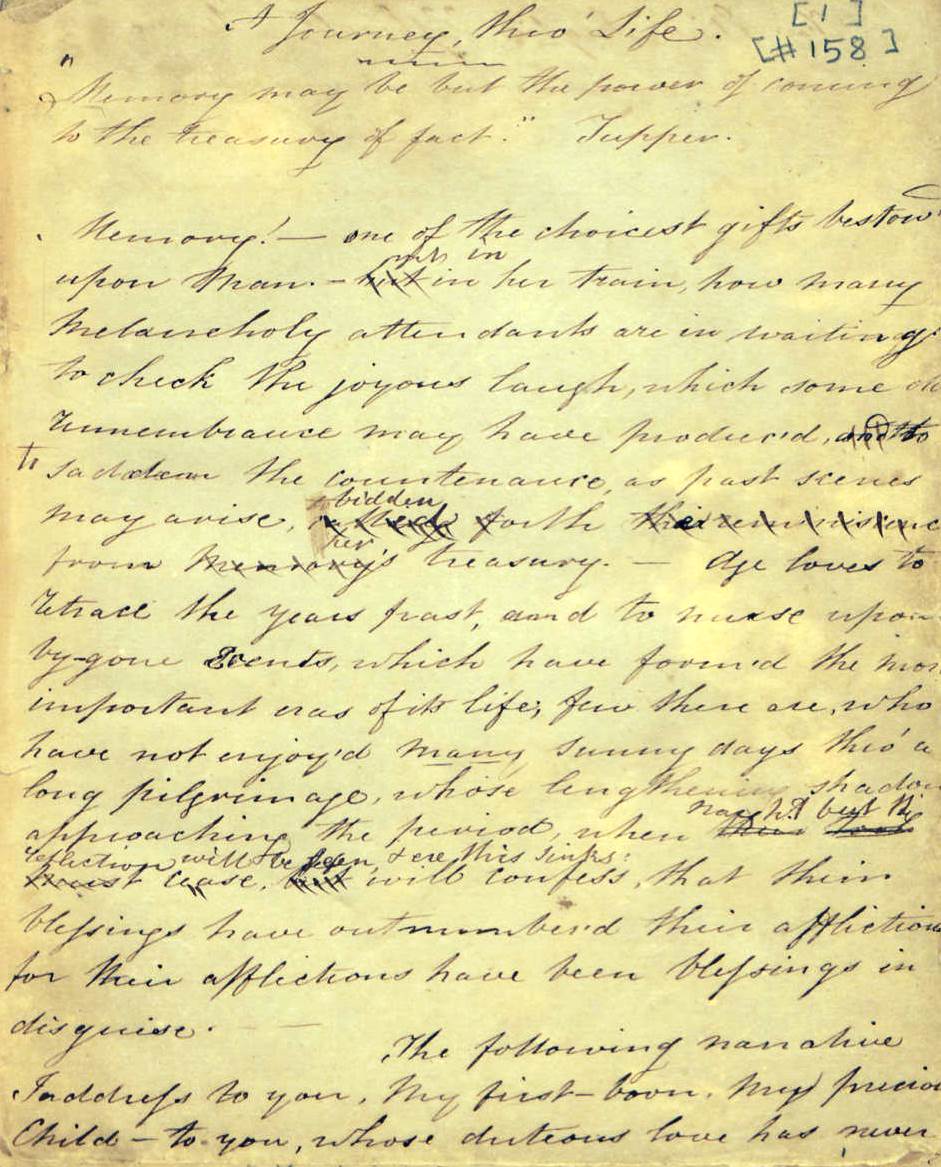 A Journey, thro' Life.
[1]
[#158]
"Memory may be but the power of coming
to the treasury of fact." Tupper.
Memory! — one of the choicest gifts bestow'd
upon Man. — but in her train, how many
yet in
melancholy attendants are in waiting
to check the joyous laugh, which some old
remembrance may have produc'd, and to
to
sadden the countenance, as past scenes
bidden
may arise, called forth their reminiscence
her
from Memory's treasury. — Age loves to
retrace the years past, and to muse upon
by-gone Events, which have form'd the most
important eras of its life; few there are, who
have not enjoy'd many sunny days thro' a
long pilgrimage, whose lengthening shadow
naught but the
approaching the period, when
reflection will be seen, & ere this sinks:
must cease, but will confess, that their
blessings have outnumber'd their afflictions
for their afflictions have been blessings in
disguise.
The following narrative
I address to you, My first-born, My precious
Child — to you, whose duteous love has never